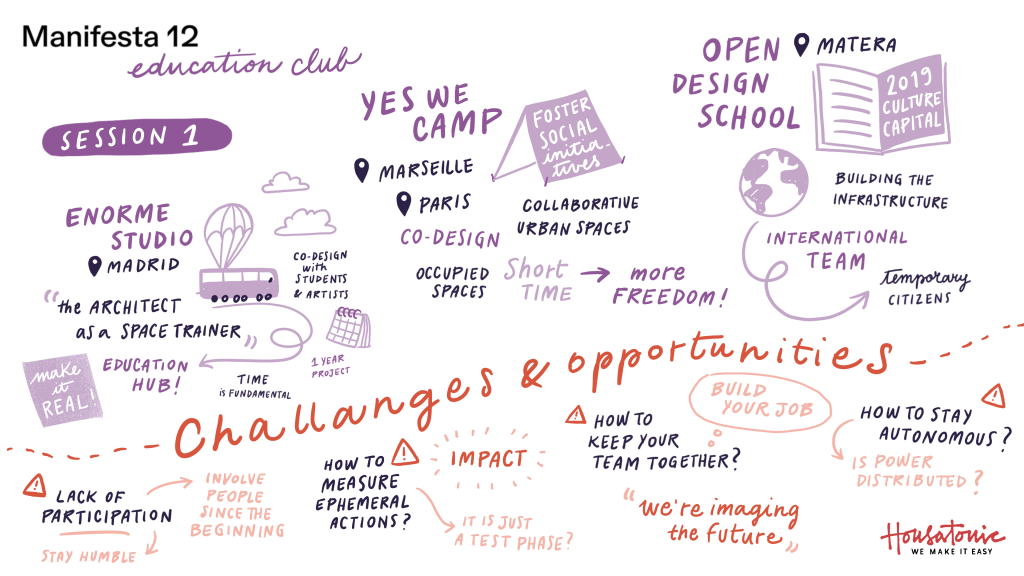 Manifesta 12
education club
SESSION 1
ENORME
STUDIO
MADRID
"the ARCHITECT
as a SPACE TRAINER"
CO-DESIGN
with
STUDENTS
& ARTISTS
1 YEAR
PROJECT
EDUCATION
HUB!
make
it
REAL!
TIME
is FUNDAMENTAL
YES WE
CAMP
FOSTER
SOCIAL
initia-
tives
MARSEILLE
PARIS
CO-DESIGN
COLLABORATIVE
URBAN SPACES
OCCUPIED
SPACES
Short
TIME
more
FREEDOM!
OPEN
DESIGN
SCHOOL
MATERA
2019
CULTURE
CAPITAL
BUILDING THE
INFRASTRUCTURE
INTERNATIONAL
TEAM
temporary
CITIZENS
Challanges & opportunities
LACK OF
PARTICIPATION
STAY HUMBLE
INVOLVE
PEOPLE
SINCE THE
BEGINNING
HOW TO
MEASURE
EPHEMERAL
ACTIONS?
IMPACT
IT IS JUST
A TEST PHASE?
HOW TO
KEEP YOUR
TEAM TOGETHER?
BUILD
YOUR JOB
"we're imaging
the future"
HOW TO STAY
AUTONOMOUS?
IS POWER
DISTRIBUTED?
Housatonic
WE MAKE IT EASY